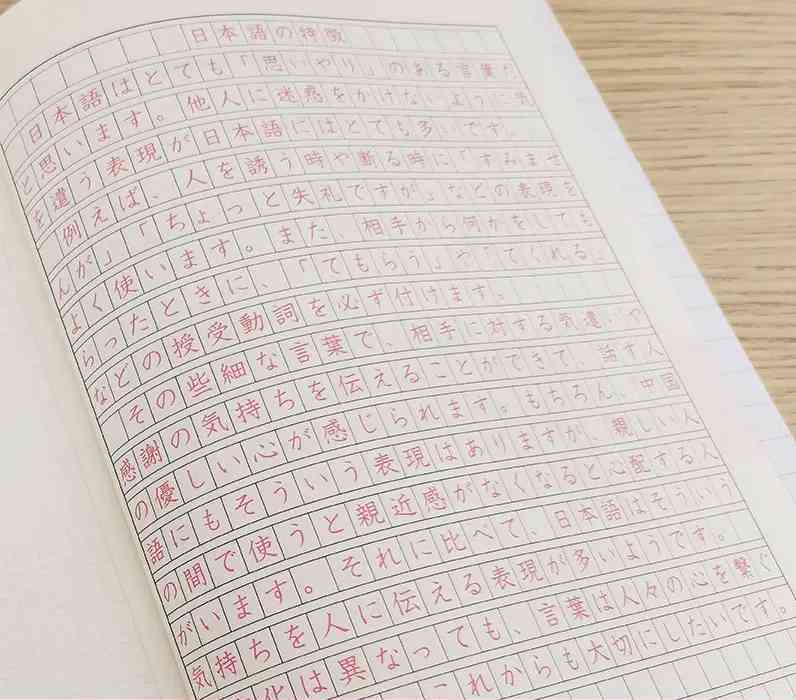 日本語の特徴
日本語はとても「思いやり」のある言葉だ
と思います。他人に迷惑をかけないように気
を遣う表現が日本語にはとても多いです。
例えば、人を誘う時や断る時に「すみませ
んが」「ちょっと失礼ですが」などの表現を
よく使います。また、相手から何かをしても
らったときに、「てもらう」や「てくれる」
などの授受動詞を必ず付けます。
その些細な言葉で、相手に対する気遣いや
感謝の気持ちを伝えることができて、話す人
の優しい心が感じられます。もちろん、中国
語にもそういう表現はありますが、親しい人
の間で使うと親近感がなくなると心配する人
がいます。それに比べて、日本語はそういう
気持ちを人に伝える表現が多いようです。
化は異なっても、言葉は人々の心を繋ぐ
これからも大切にしたいです。